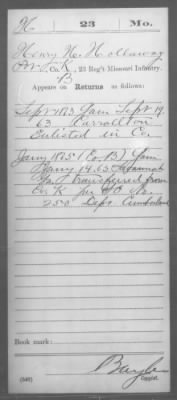 H | 23 | Mo.
Henry H. Hollaway
Pvt, Co. K, 23 Reg't Missouri Infantry.
B
Appears on Returns as follows:
Sept 1863 Gain Sept 19
63 Carrollton
Enlisted in Co.
Jany 1865 (Co. B) Gain
Jany 14.65 Savannah
Ga. transferred from
Co. K per S.O. No.
250 Dept. Cumberland
Book mark:
(546)
Copyist.